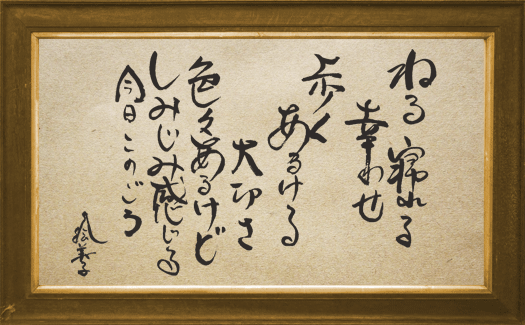 ねる 寝れる
幸わせ
歩く
あるける
大切さ
色々あるけど
しみじみ感じる
今日このごろ